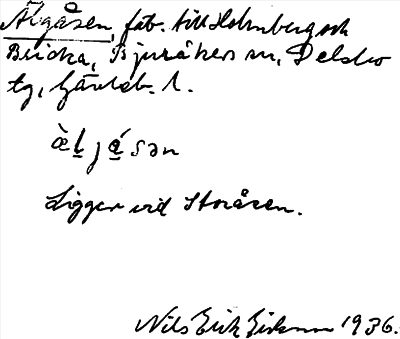 Älgåsen, fäb. till Holmberg och
Bricka, Bjuråkers sn, Delsbo
tg, Gävleb. l.
æ̀l̠ jǻ̠sən
Ligger vid Storåsen.
Nils Erik Eriksson 1936.